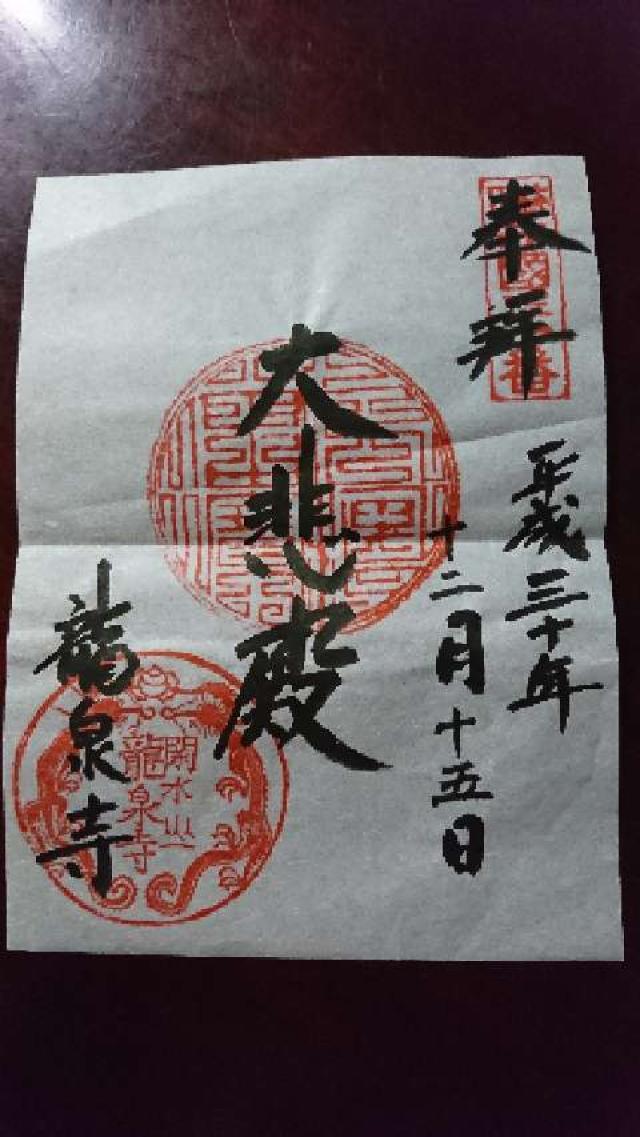 奉拜
平成三十年
十二月十五日
大悲殿
龍泉寺
龍泉寺